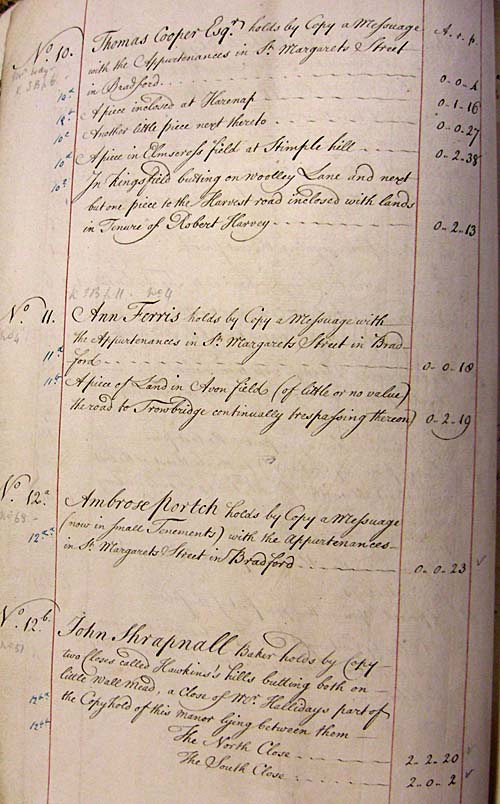 A. r. p.
No. 10. Thomas Cooper Esqr. holds by Copy a Messuage
with the Appurtenances in St. Margarets Street
in Bradford. 0-0-4
10b A piece inclosed at Harenap 0-1-16
10c Another little piece next thereto 0-0-27
10d A piece in Elmscross field at Stimple hill 0-2-38
10e In Kingsfield butting on Woolley Lane and next
but one piece to the Harvest road inclosed with lands
in Tenure of Robert Harvey 0-2-13
No. 11. Ann Ferris holds by Copy a Messuage with
the Appurtenances in St. Margarets Street in Brad-
11a ford 0-0-18
11b A piece of Land in Avon field (of little or no value)
the road to Trowbridge continually trespassing thereon) 0-2-19
No. 12a. Ambrose Portch holds by Copy a Messuage
(now in small Tenements) with the Appurtenances
in St. Margarets Street in Bradford 0-0-23
No. 12b. John Shrapnall Baker holds by Copy
two Closes called Hawkins's hills butting both on
little Wall Mead, a Close of Mr. Hallidays part of
the Copyhold of this manor lying between them
The North Close 2-2-20
The South Close 2-0-2